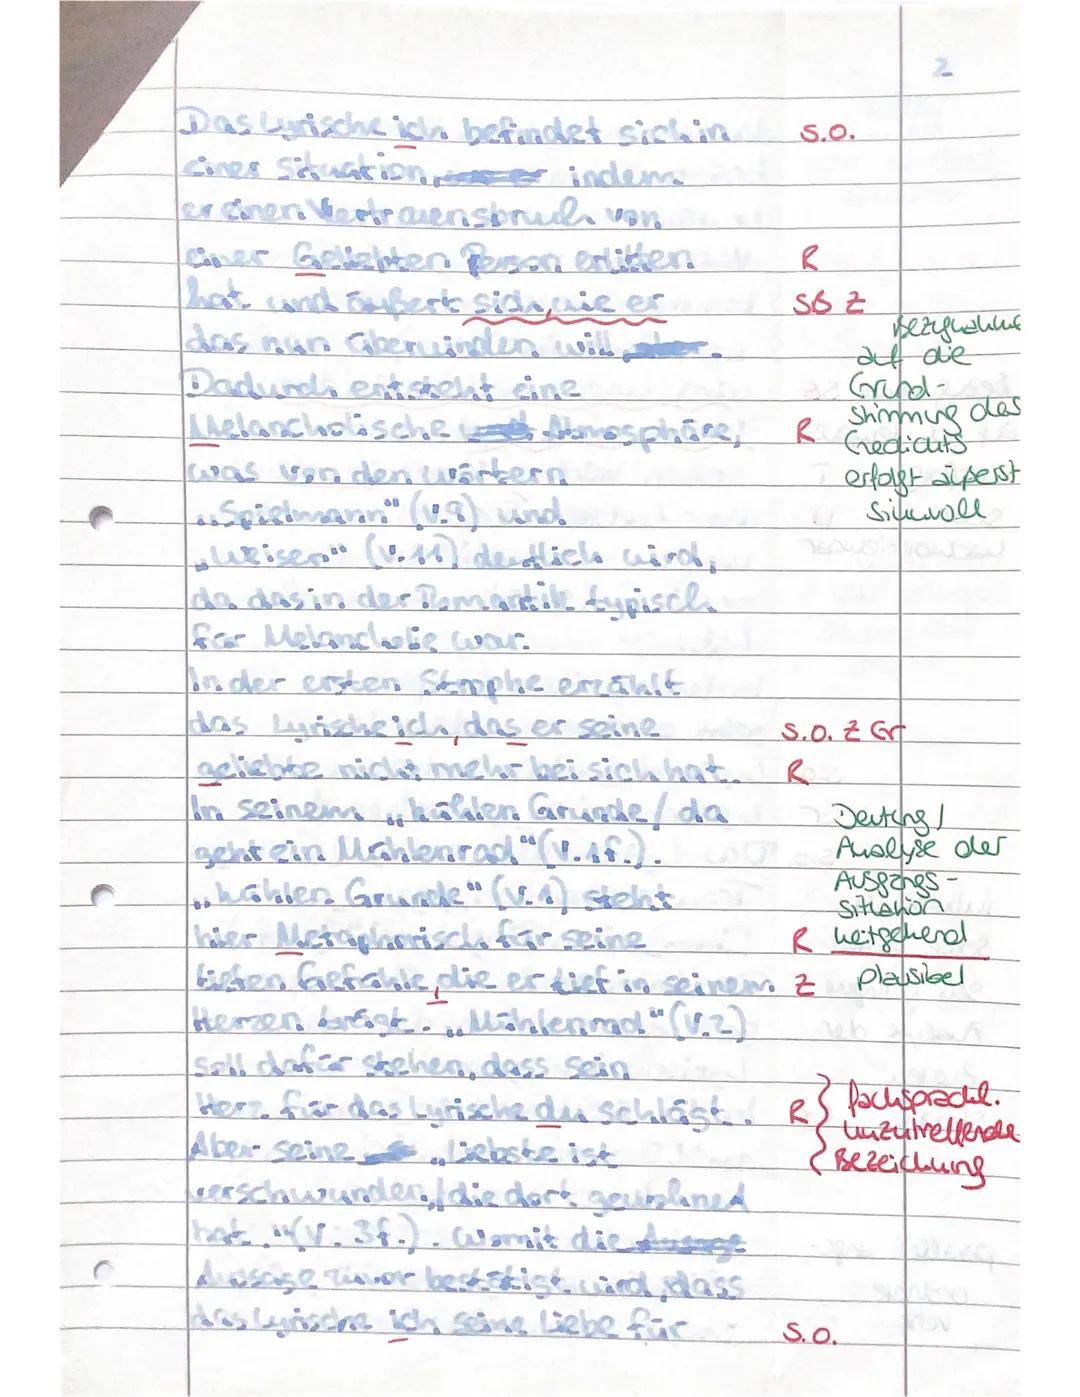 2
Das Lyrische ich befindet sich in S.O.
einer Situation, indem
er einen Vertrauensbruch von
einer Geliebten Person erlitten R
hat und äußert sich, wie er SB Z
das nun überwinden will.
Bezugnahme
auf die
Grund-
stimmung des
Gedichts
erfolgt äußerst
sinnvoll
Dadurch entsteht eine
Melancholische Atmosphäre, R
was von den wörtern
„Spielmann" (V.9) und
„Weisen" (V.11) deutlich wird,
da das in der Romantik typisch
für Melancholie war.
In der ersten Strophe erzählt
das Lyrische ich, das er seine S.O. Z Gr
geliebte nicht mehr bei sich hat. R
In seinem „kühlen Grunde / da
geht ein Mühlenrad" (V.1f.).
„kühlen Grunde" (V.1) steht
hier Metaphorisch für seine R
tiefen Gefühle, die er tief in seinem Z
Deutung /
Analyse der
Ausgangs-
situation
weitgehend
plausibel
Herzen trägt. „Mühlenrad" (V.2)
soll dafür stehen, dass sein
Herz für das Lyrische du schlägt. R
fachsprachl.
unzutreffende
Bezeichnung
Aber seine „Liebste ist
verschwunden, / die dort gewohned
hat." (V. 3f.). Womit die
Aussage zuvor bestätigt wird, dass
das Lyrische ich seine Liebe für S.O.